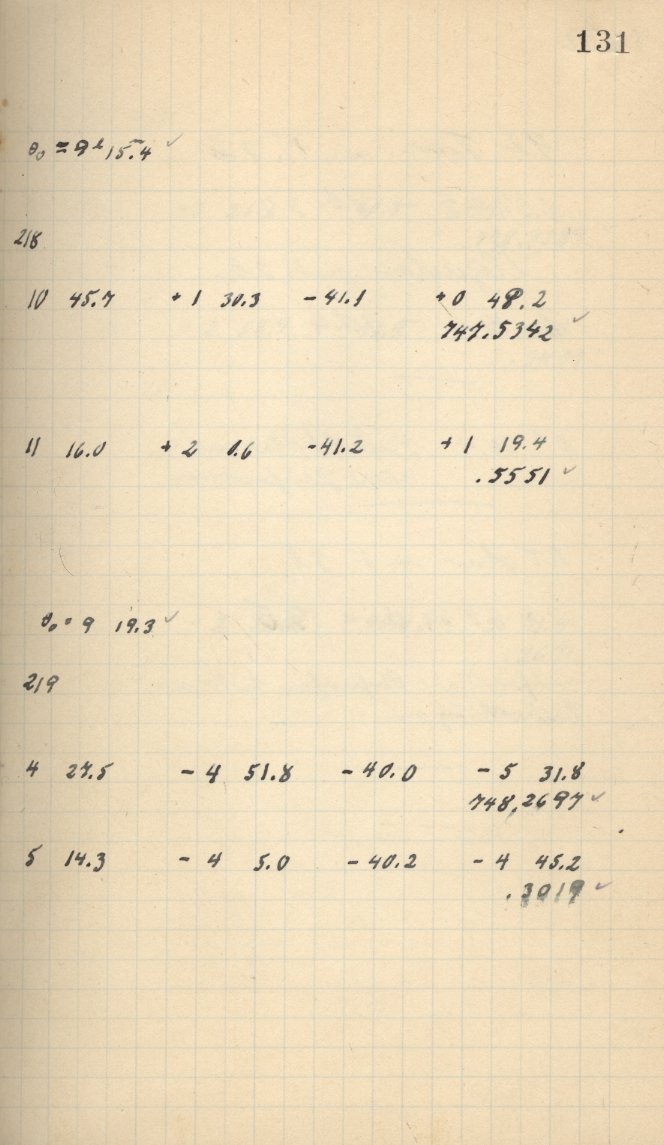 131
θ₀ = 9ʰ 15.4 ✓
218
10 45.7 + 1 30.3 - 41.1 + 0 49.2
747.5342 ✓
11 16.0 + 2 0.6 - 41.2 + 1 19.4
.5551 ✓
θ₀ = 9 19.3 ✓
219
4 27.5 - 4 51.8 - 40.0 - 5 31.8
748.2697 ✓
5 14.3 - 4 5.0 - 40.2 - 4 45.2
.3019 ✓